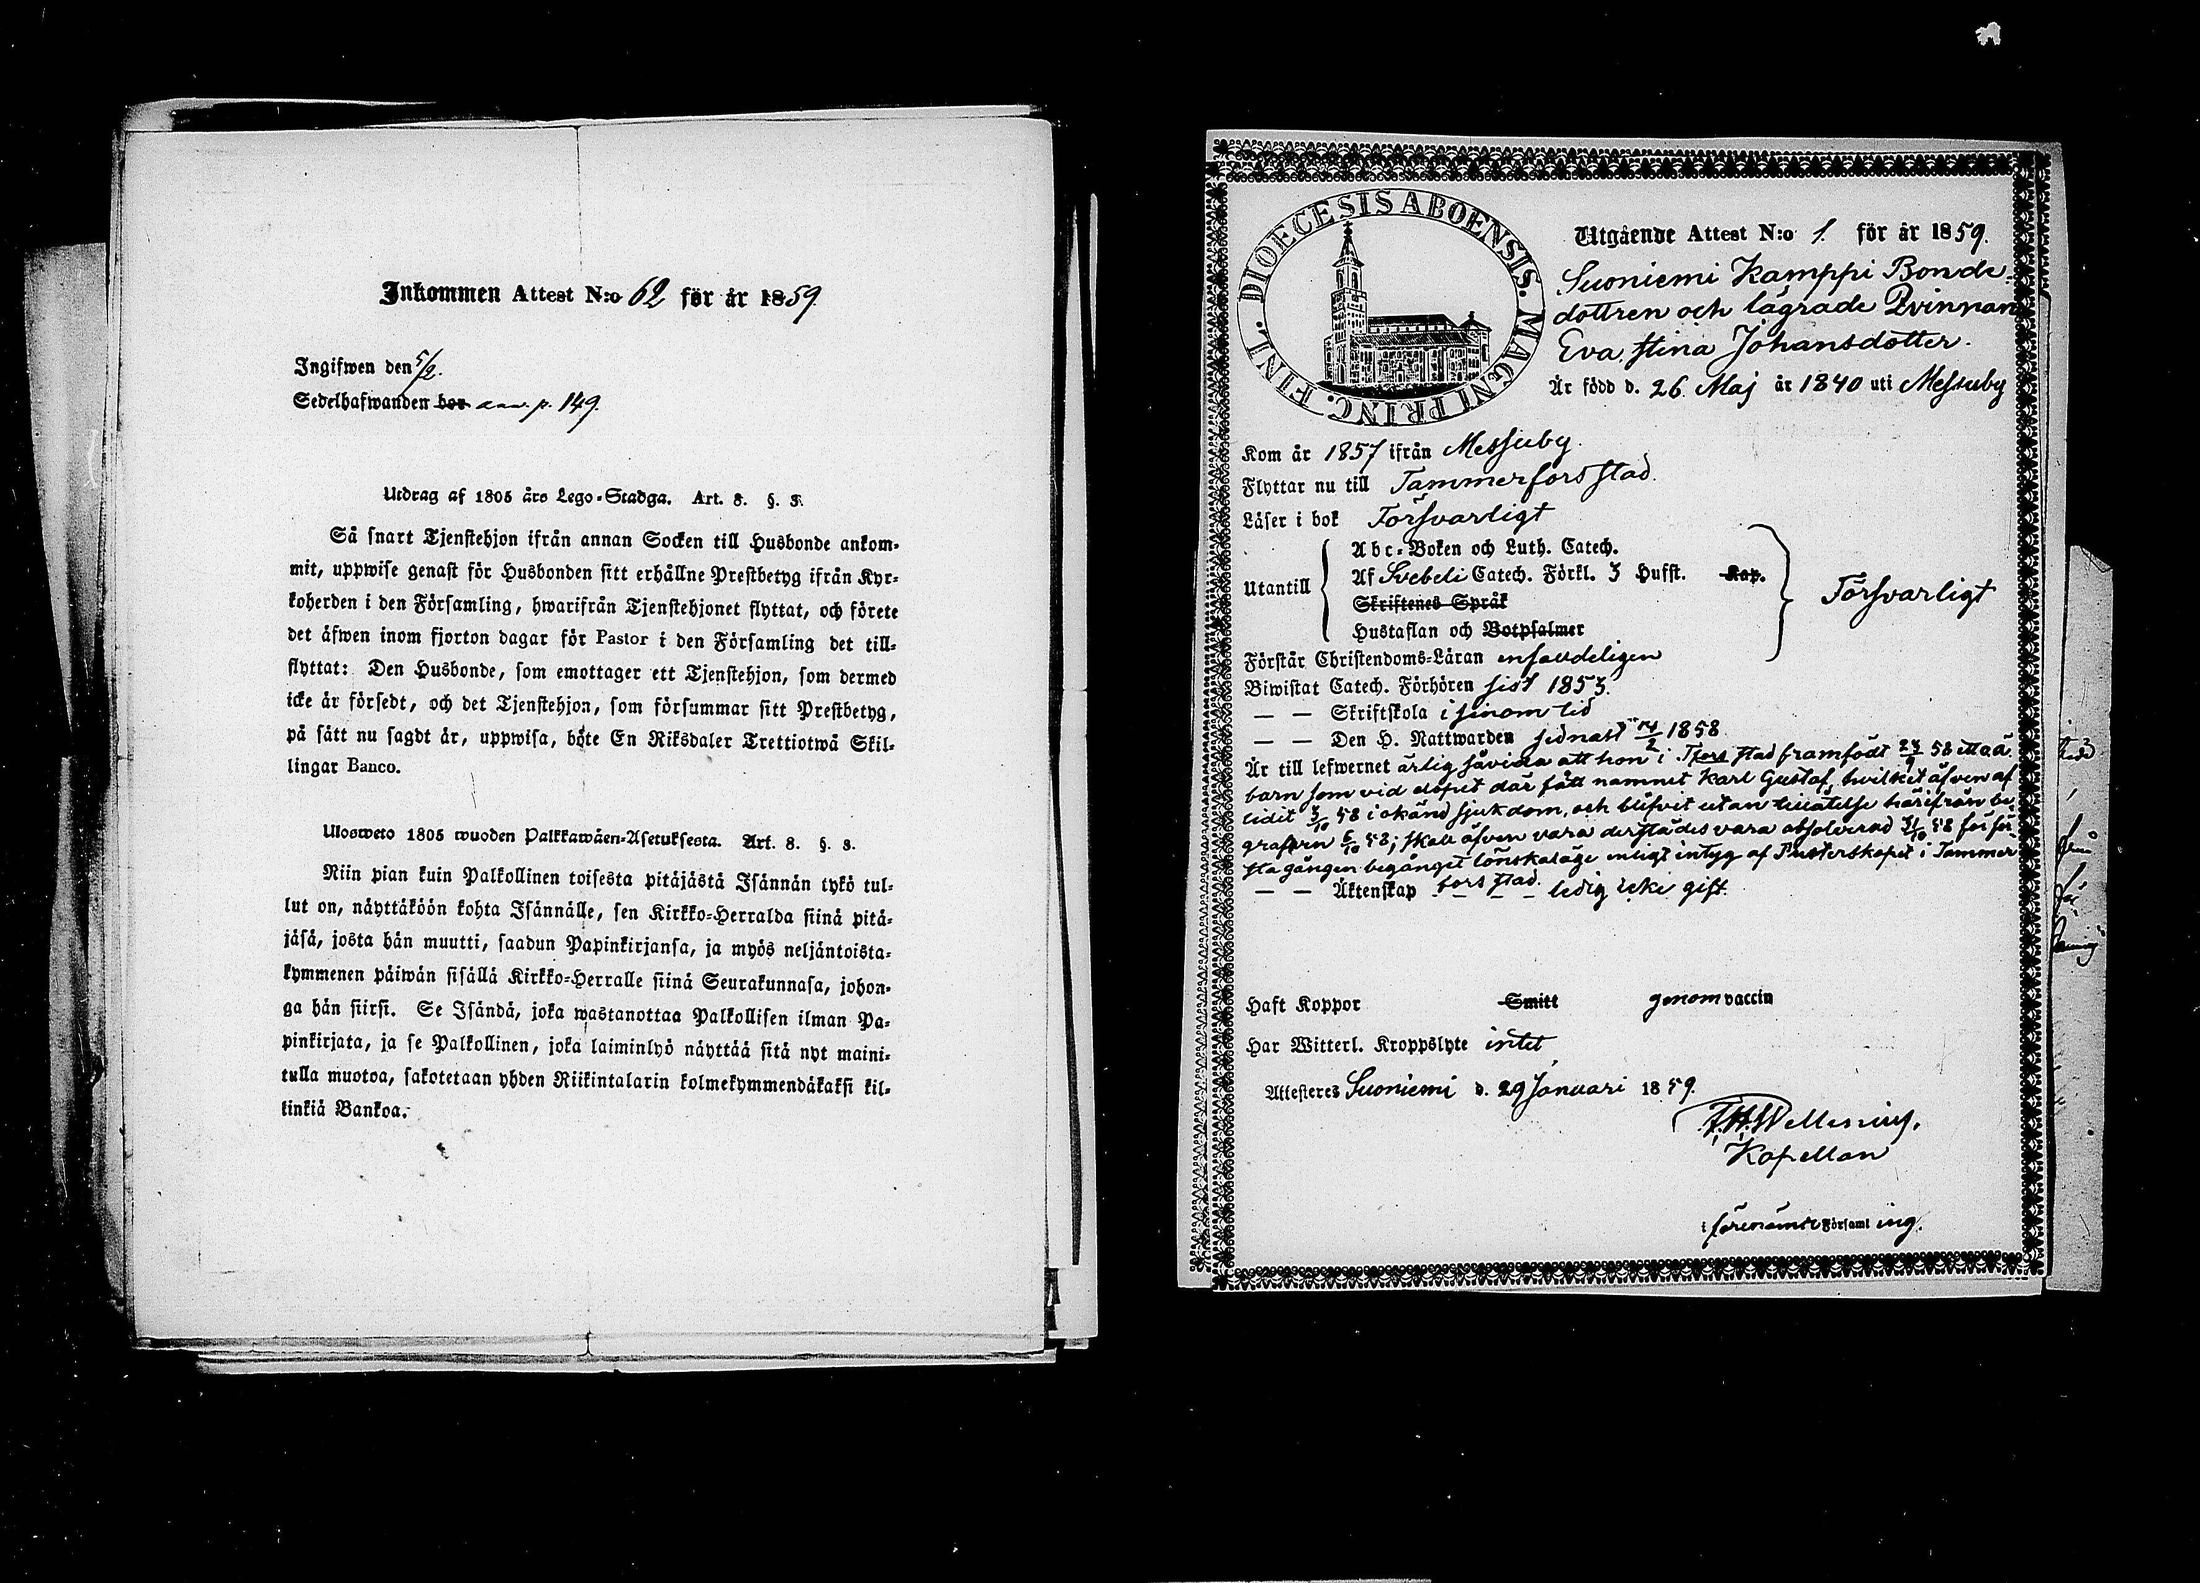 Inkommen Attest N:o 62 för år 1859.
Ingifwen den 5/2.
Sedelhafwanden bor p. 149.
Utdrag af 1805 års Lego-Stadga. Art. 8. §. 3.
Så snart Tjenstehjon ifrån annan Socken till Husbonde ankom-
mit, uppwise genast för Husbonden sitt erhållne Prestbetyg ifrån Kyr-
koherden i den Församling, hwarifrån Tjenstehjonet flyttat, och förete
det äfwen inom fjorton dagar för Pastor i den Församling det till-
flyttat: Den Husbonde, som emottager ett Tjenstehjon, som dermed
icke är försedt, och det Tjenstehjon, som försummar sitt Prestbetyg,
på sätt nu sagdt är, uppwisa, böte En Riksdaler Trettiotwå Skil-
lingar Banco.
Ulosweto 1805 wuoden Palkkawäen-Asetuksesta. Art. 8. §. 3.
Niin pian kuin Palkollinen toisesta pitäjästä Isännän tykö tul-
lut on, näyttäköön kohta Isännälle, sen Kirkko-Herralda siinä pitä-
jäsä, josta hän muutti, saadun Papinkirjansa, ja myös neljäntoista-
kymmenen päiwän sisällä Kirkko-Herralle siinä Seurakunnasa, johon-
ga hän siirsi. Se Isändä, joka wastanottaa Palkollisen ilman Pa-
pinkirjata, ja se Palkollinen, joka laiminlyö näyttää sitä nyt maini-
tulla muotoa, sakotetaan yhden Riikintalarin kolmekymmendäkaksi kil-
linkiä Bankoa.
DIOECESIS ABOENSIS. MAGNI PRINC. FINL.
Utgående Attest N:o 1. för år 1859.
Suoniemi Kamppi Bonde-
dottren och lägrade Qvinnan
Eva Stina Johansdotter.
Är född d. 26 Maj år 1840 uti Messuby
Kom år 1857 ifrån Messuby.
Flyttar nu till Tammerfors stad.
Läser i bok Försvarligt
Utantill
Abc-Boken och Luth. Catech.
Af Svebeli Catech. Förkl. 3 Hufst. Kap.
Skriftenes Språk
Hustaflan och Botpsalmer
Försvarligt
Förstår Christendoms-Läran enfaldeligen
Biwistat Catech. Förhören sist 1853.
— — Skriftskola i sinom tid
— — Den H. Nattwarden sednast 14/2 1858
Är till lefwernet ärlig såvida att hon i Tfors stad framfödt 24/9 58 ett oä.
barn som vid dopet där fått namnet Karl Gustaf, hvilket äfven af
lidit 3/10 58 i okänd sjukdom, och blifvit utan tillåtelse härifrån be
grafven 6/10 58; skall äfven vara derstädes vara absolverad 31/10 58 för för
sta gången begånget lönskaläge enligt intyg af Presterskapet i Tammer
— — Äktenskap fors stad. — — — ledig icke gift.
Haft Koppor Smitt genom vaccin
Har Witterl. Kroppslyte intet
Attesteres Suoniemi d. 29 Januari 1859.
Kapellan
i förenämde Församl ing.